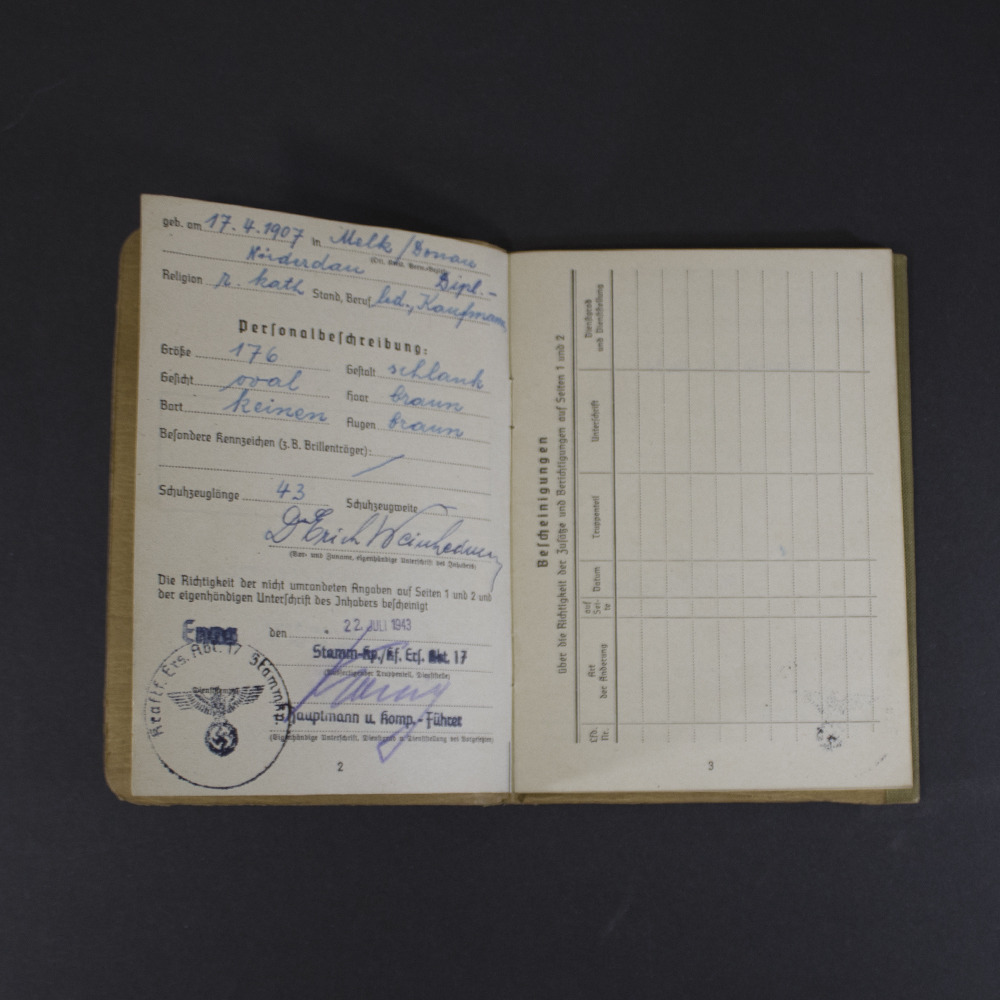 geb. am 17.4.1907 in Melk / Donau
Niederdau Dipl.-
Religion r. kath Stand, Beruf led., Kaufmann
Personalbeschreibung:
Größe 176 Gestalt schlank
Gesicht oval Haar braun
Bart keinen Augen braun
Besondere Kennzeichen (z.B. Brillenträger):
Schuhzeuglänge 43 Schuhzeugweite
Dr Erich
(Vor- und Zuname, eigenhändige Unterschrift des Inhabers)
Die Richtigkeit der nicht umrandeten Angaben auf Seiten 1 und 2 und
der eigenhändigen Unterschrift des Inhabers bescheinigt
Enns den 22. JULI 1943
Stamm-Kp./Kf. Ers. Abt. 17
(Ausfertigender Truppenteil, Dienststelle)
Hauptmann u. Komp.-Führer
(Eigenhändige Unterschrift, Dienstgrad u. Dienststellung des Vorgesetzten)
Kraftf. Ers. Abt. 17 Stammkp.
Dienststempel
2
Bescheinigungen
über die Richtigkeit der Zusätze und Berichtigungen auf Seiten 1 und 2
Lfd. Nr.
Art
der Änderung
auf
Sei-
te
Datum
Truppenteil
Unterschrift
Dienstgrad
und Dienststellung
3